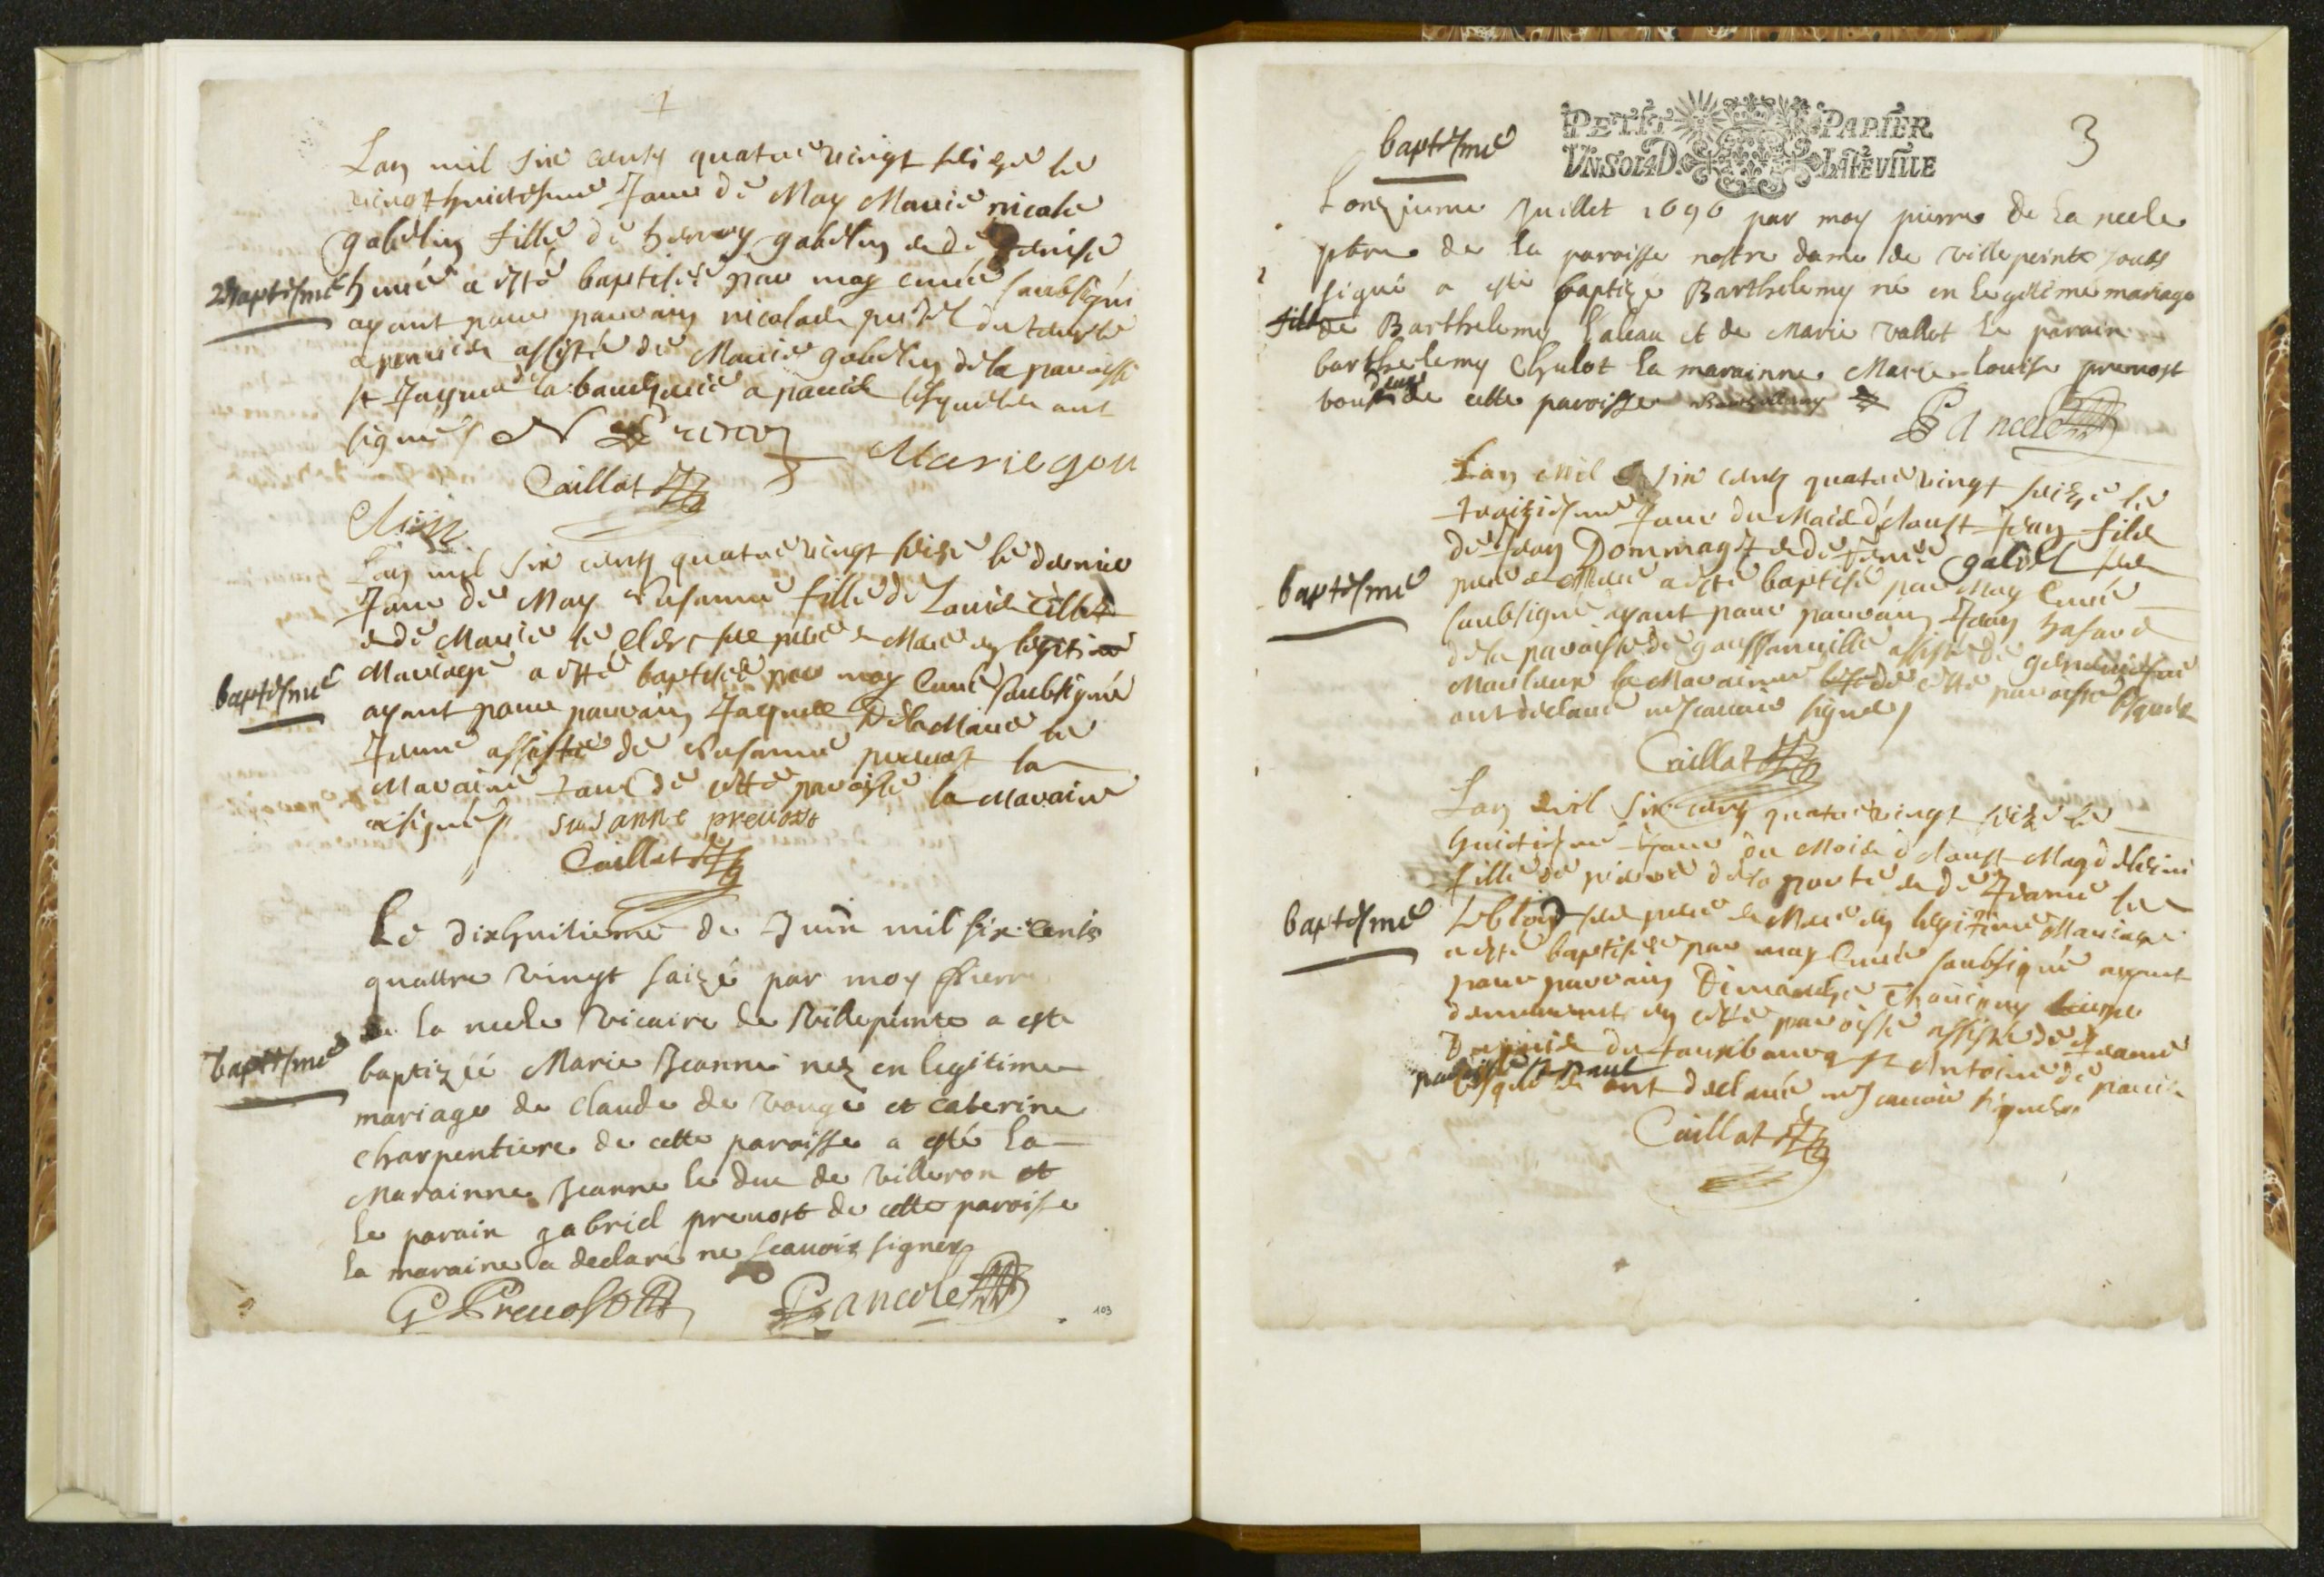 Lan mil six cents quatre vingt seize le
vingt huictiesme Jour de May Marie nicole
gobelin fille de hanry gobelin et de denise
Baptesme
huvé a esté baptisée par moy curé soubsigné
ayant pour parrain nicolas
a paris assistée de Marie gobelin de la paroisse
st Jaques de la boucherie a paris lesquels ont
signés
Marie gou
Caillat
Lan mil six cents quatre vingt seize le dernier
Jour de May Susanne fille de Louis Cillot
et de Marie le Clerc ses pere et Mere en legitime
baptesme
Mariage a esté baptisée par moy Curé soubsigné
ayant pour parrain Jaques Delamare le
Jeune assisté de Susanne prevost la
Maraine tous de cette paroisse la Maraine
a signé susanne prevost
Caillat
Le dixhuitieme de Juin mil six cents
quattre vingt saize par moy Pierre
de la neele vicaire de Villepinte a este
baptesme
baptizée Marie Jeanne nez en legitime
mariage de Claude de vouge et Caterine
charpentiere de cette paroisse a esté la
Marainne Jeanne le duc de villeron et
le parain gabriel prevost de cette paroisse
la maraine a declaré ne scauoir signer
G Preuost
103
baptesme
PETIT PAPIER
VN SOL 4 D. LA FEVILLE
3
Lonzieme Juillet 1696 par moy pierre de la neele
pbre de la paroisse nostre dame de villepeinte soubs
signé a esté baptizé Barthelemy né en legitime mariage
fils de Barthelemy Laleau et de Marie vallot le parain
barthelemy Chulot la marainne Marie louise prevost
tous deux de cette paroisse
Lan Mil Six cents quatre vingt seize le
traiziesme Jour du Mois daoust Jean fils
de Jean Dommag et de Jeanne gabriel ses
baptesme
pere et Mere a esté baptisé par Moy Curé
soubsigné ayant pour parrain Jean hasard
de la paroisse de goussainville assisté de geneuiesue
la Maraine de cette paroisse lesquels
ont declaré ne scauoir signer
Caillat
Lan Mil Six cents quatre vingt seize le
huictiesme Jour du Mois daoust Magdeleine
fille de pierre de la porte et de Jeanne le
baptesme
Leblond ses pere et Mere en legitime Mariage
a esté baptisée par moy Curé soubsigné ayant
pour parrain Dimanche Thauigny
demeurant en cette paroisse assisté de Jeanne
du fauxbourg st Antoine de paris
paroisse st paul
lesquels ont declaré ne scauoir signer
Caillat